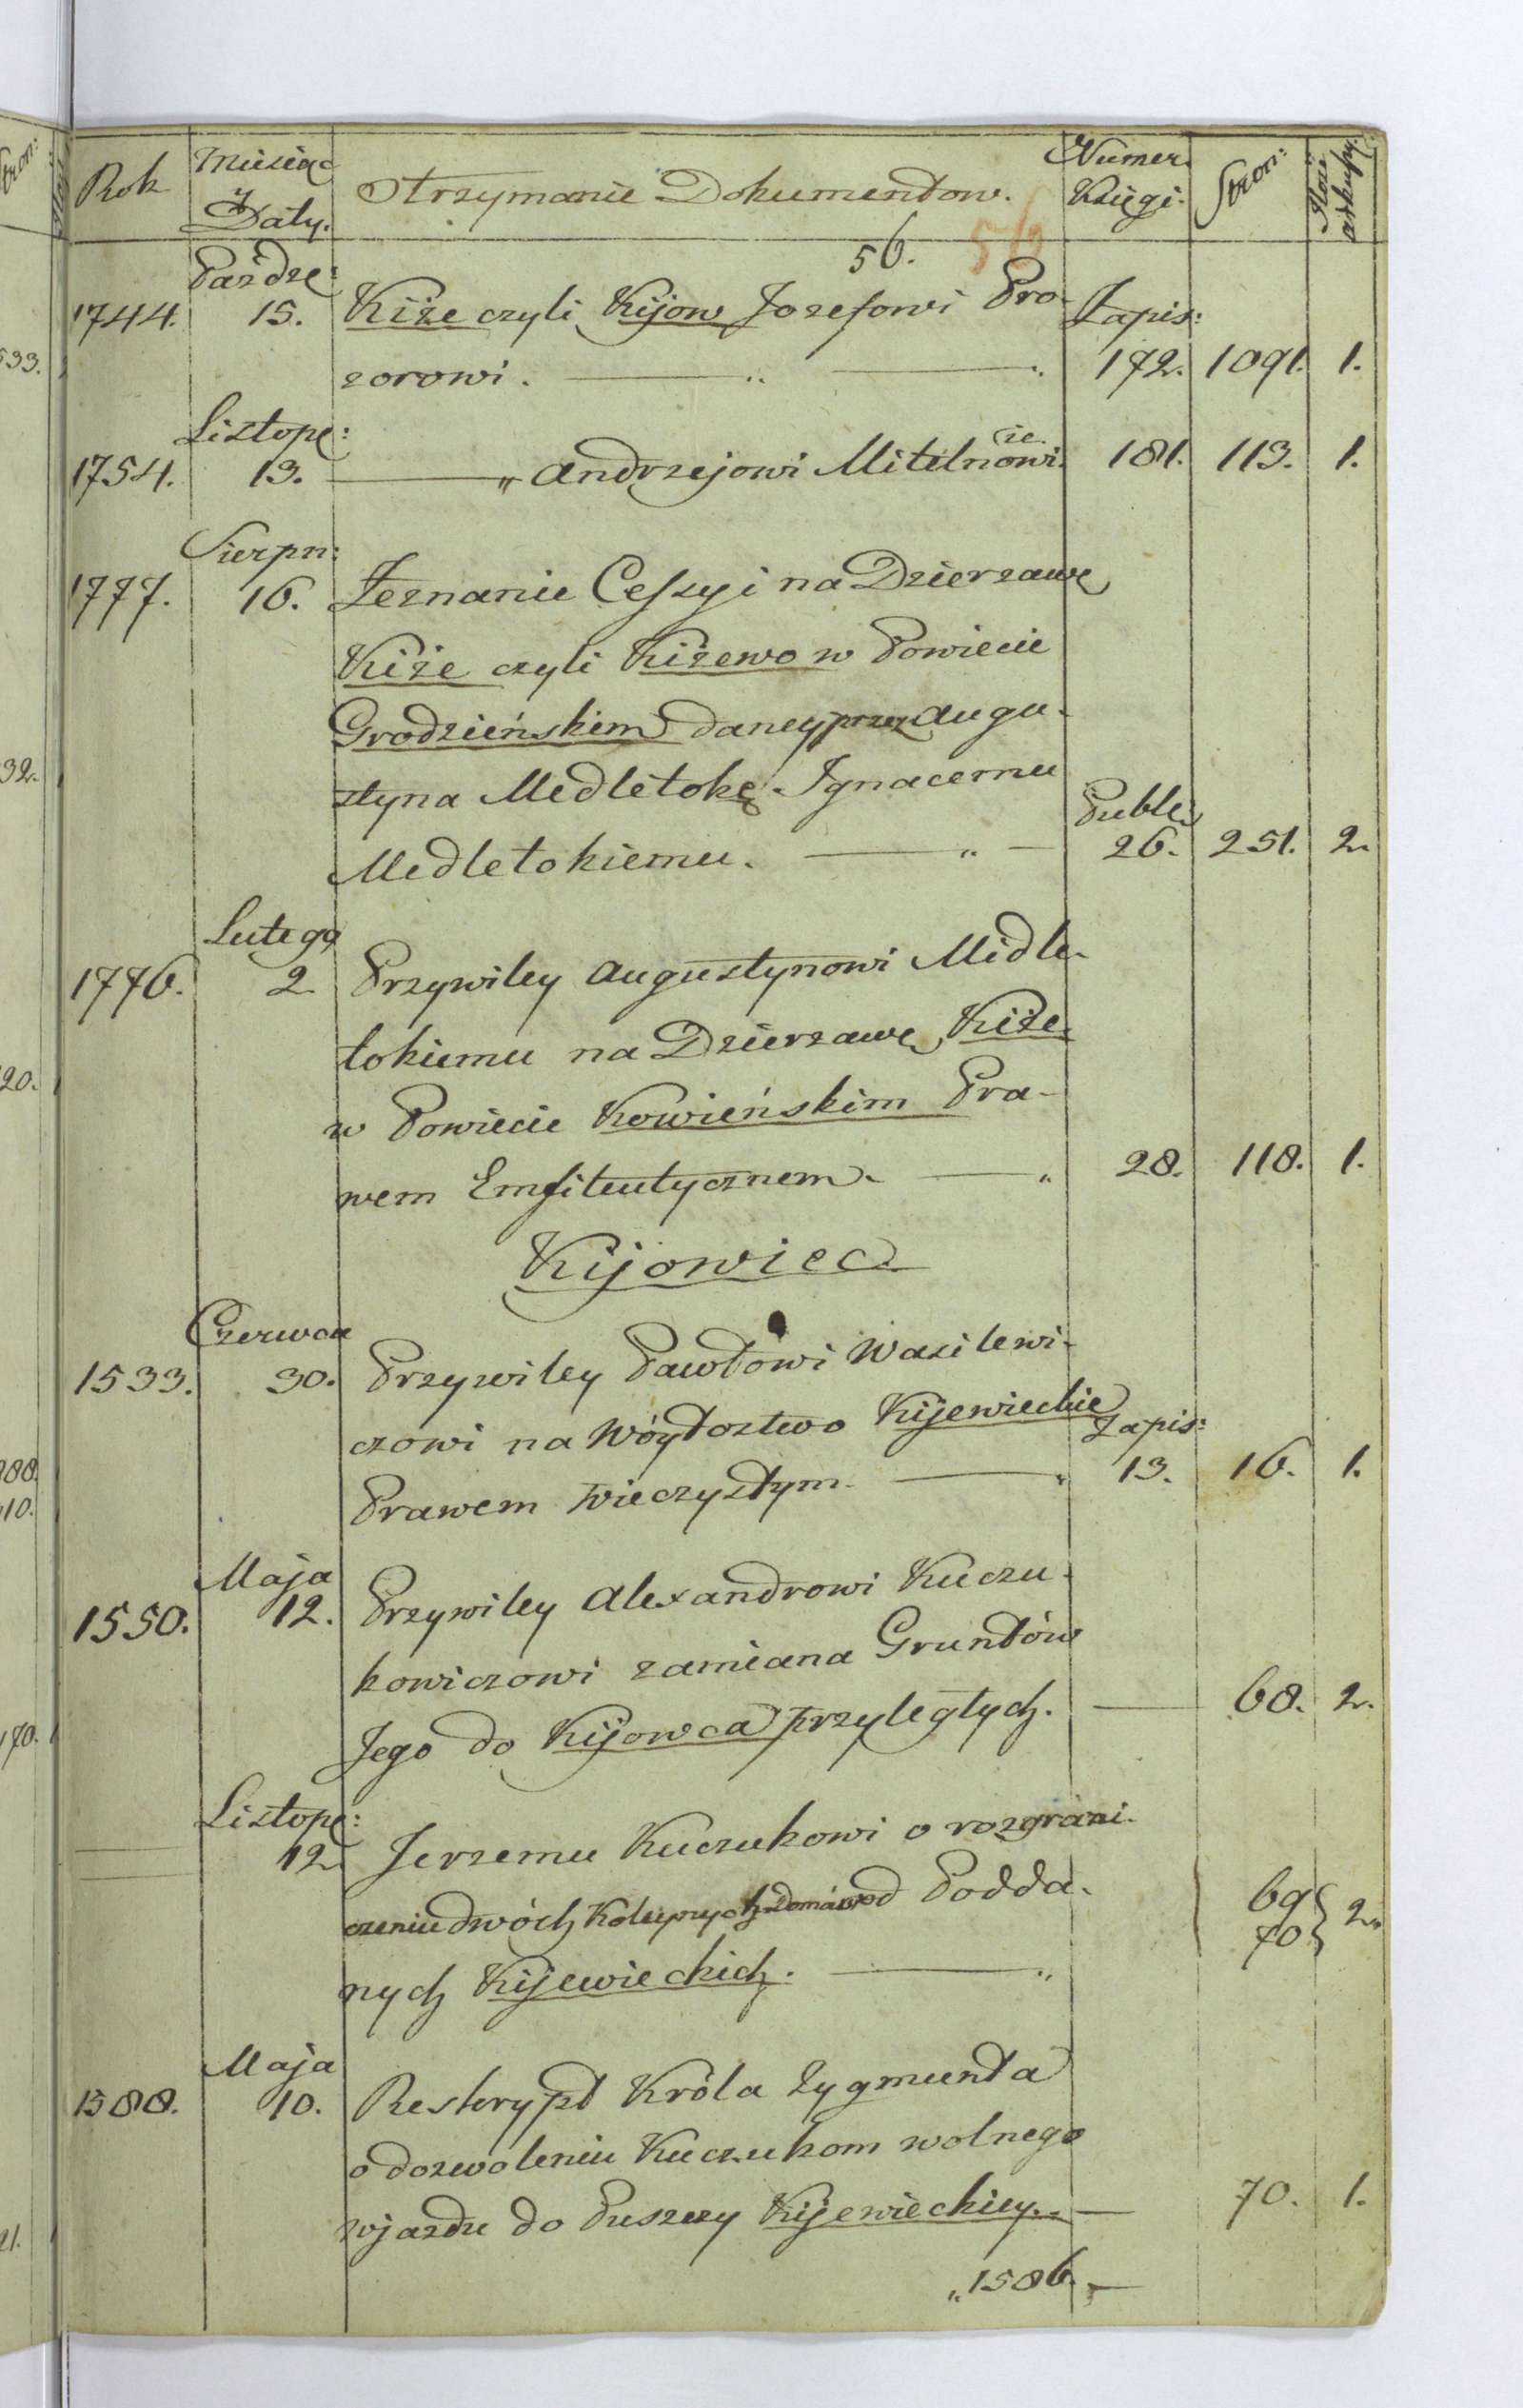 Rok Miesiąc Otrzymanie Dokumentow. Numer Stron: Ilość
i Daty. Księgi. arkuszy.
56. 56
Paźdze:
1744. 15. Kiże czyli Kijow Jozefowi Pro- Zapis:
zorowi. 172. 1091. 1.
Listope: cie.
1754. 13. " Andrzejowi Mitelnowi. 181. 113. 1.
Sierpn:
1777. 16. Zeznanie Cessyi na Dzierzawę
Kiże czyli Kiżewo w Powiecie
Grodzieńskim daney przez Augu-
styna Medletokę Ignacemu Publ:
Medletokiemu. 26. 251. 2.
Lutego
1776. 2. Przywiley Augustynowi Midle-
tokiemu na Dzierzawę Kiże
w Powiecie Kowieńskim Pra-
wem Emfiteutycznem. 28. 118. 1.
Kijowiec
Czerwca
1533. 30. Przywiley Pawłowi Wasilewi-
czowi na Wóytostwo Kijewieckie Zapis:
Prawem wieczystym. 13. 16. 1.
Maja
1550. 12. Przywiley Alexandrowi Kuczu-
kowiczowi zamiana Gruntów
Jego do Kijowca przyległych. 68. 2.
Listope:
12. Jerzemu Kuczukowi o rozgrani-
czeniu dwóch od Podda- 69
70 } 2.
nych Kijewieckich.
Maja
1588. 10. Reskrypt Króla Zygmunta
o dozwoleniu Kuczukom wolnego
wjazdu do Puszczy Kijewieckiey. 70. 1.
" 1586.
33.
32.
20.
10.
170.
21.